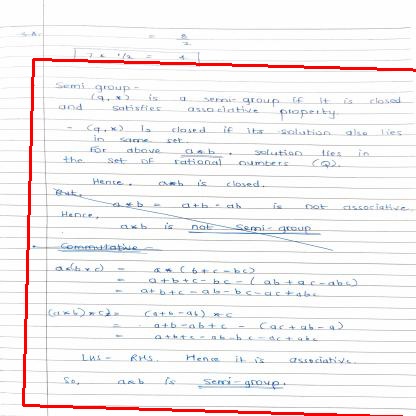 = 8/2
7 * 1/2 = 4
Semi group -
(Q, *) is a semi-group if it is closed
and satisfies associative property.
- (Q, *) is closed if its solution also lies
in same set.
For above a*b, solution lies in
the set of rational numbers (Q).
Hence, a*b is closed.
But,
a*b = a+b-ab is not associative.
Hence,
a*b is not semi-group
Commutative -
a*(b*c) = a*(b+c-bc)
= a+b+c-bc-(ab+ac-abc)
= a+b+c-ab-bc-ac+abc
(a*b)*c = (a+b-ab)*c
= a+b-ab+c-(ac+ab-a)
= a+b+c-ab-bc-ac+abc
LHS - RHS. Hence it is associative.
So, a*b is semi-group.